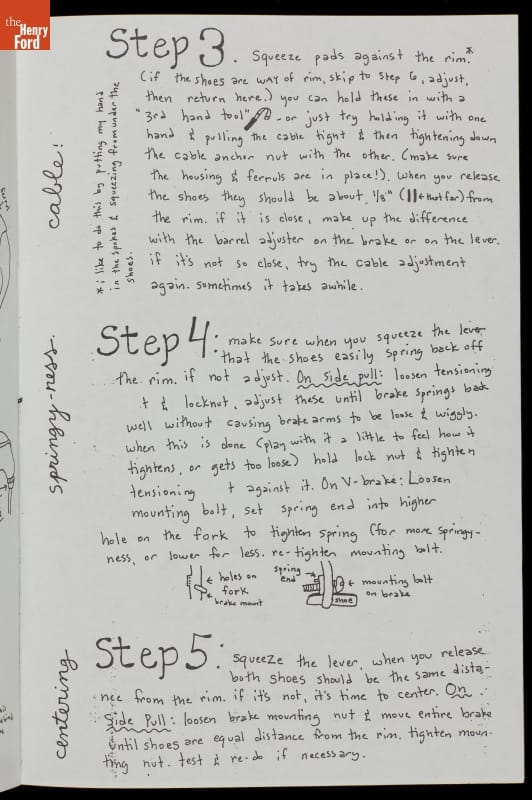 the
Henry
Ford
Step 3. Squeeze pads against the rim.*
(if the shoes are WAY of rim, skip to step 6, adjust,
then return here.) you can hold these in with a
"3rd hand tool" - or just try holding it with one
hand & pulling the cable tight & then tightening down
the cable anchor nut with the other. (make sure
the housing & ferruls are in place!). When you release
the shoes they should be about 1/8" (||←that far) from
the rim. if it is close, make up the difference
with the barrel adjuster on the brake or on the lever.
if it's not so close, try the cable adjustment
again. sometimes it takes awhile.
* i like to do this by putting my hand
in the spokes & squeezing from under the
shoes.
cable!
Step 4: make sure when you squeeze the lever
that the shoes easily spring back off
the rim. if not adjust. On side pull: loosen tensioning
t & locknut, adjust these until brake springs back
well without causing brake arms to be loose & wiggly.
when this is done (play with it a little to feel how it
tightens, or gets too loose) hold lock nut & tighten
tensioning t against it. On V-brake: Loosen
mounting bolt, set spring end into higher
hole on the fork to tighten spring (for more springy-
ness, or lower for less. re-tighten mounting bolt.
springy-ness.
← holes on
fork
brake mount
spring
end
← mounting bolt
on brake
shoe
Step 5: squeeze the lever, when you release
both shoes should be the same dista-
nce from the rim. if it's not, it's time to center. On
Side Pull: loosen brake mounting nut & move entire brake
until shoes are equal distance from the rim. tighten moun-
ting nut. test & re-do if necessary.
centering